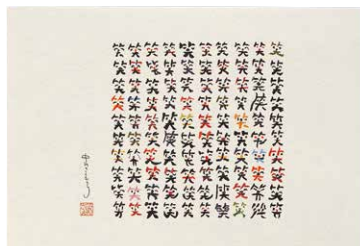 笑笑笑笑笑笑笑笑笑笑
笑笑笑笑笑笑笑笑笑笑
笑笑笑笑笑笑笑笑笑笑
笑笑笑笑笑笑笑笑笑笑
笑笑笑笑笑笑笑笑笑笑
笑笑笑笑笑笑笑笑笑笑
笑笑笑笑笑笑笑笑笑笑
笑笑笑笑笑笑笑笑笑笑
笑笑笑笑笑笑笑笑笑笑
笑笑笑笑笑笑笑笑笑笑